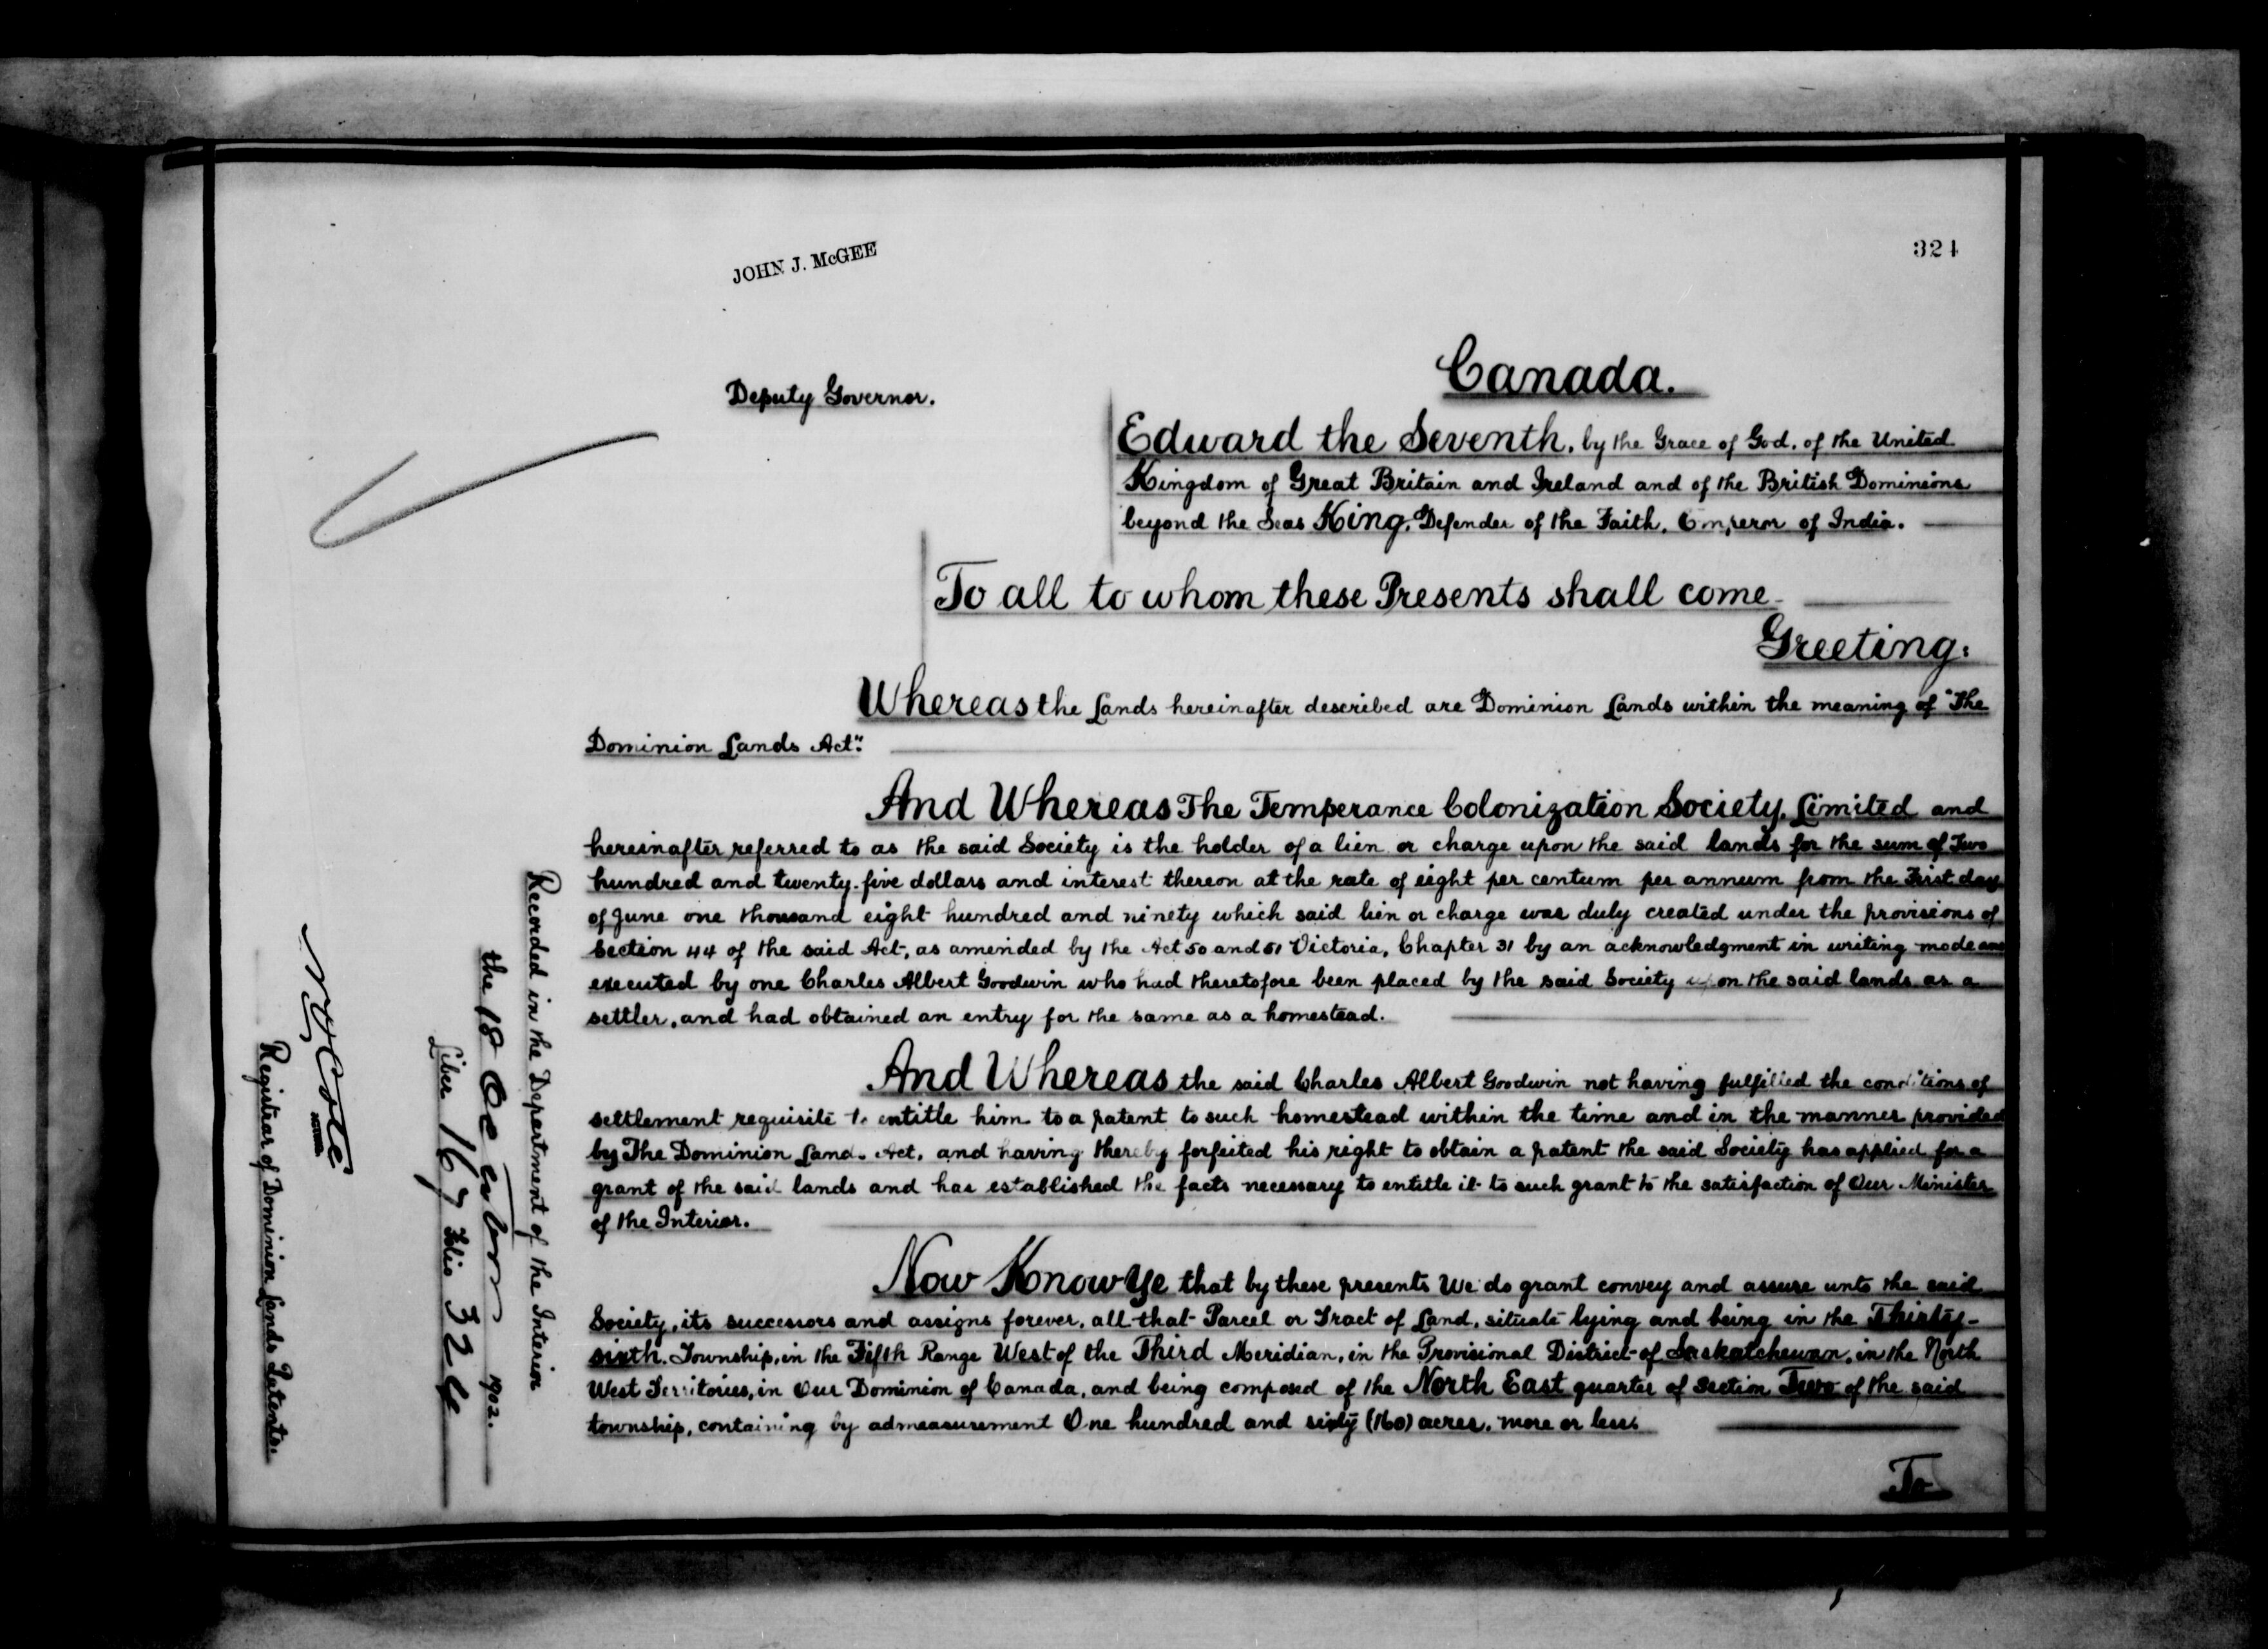 JOHN J. McGEE
324
Deputy Governor.
Canada.
Edward the Seventh, by the Grace of God, of the United
Kingdom of Great Britain and Ireland and of the British Dominions
beyond the Seas King, Defender of the Faith, Emperor of India.
To all to whom these Presents shall come
Greeting:
Whereas the Lands hereinafter described are Dominion Lands within the meaning of "The
Dominion Lands Act".
And Whereas The Temperance Colonization Society, Limited and
hereinafter referred to as the said Society is the holder of a lien or charge upon the said lands for the sum of Two
hundred and twenty-five dollars and interest thereon at the rate of eight per centum per annum from the First day
of June one thousand eight hundred and ninety which said lien or charge was duly created under the provisions of
section 44 of the said Act, as amended by the Act 50 and 51 Victoria, Chapter 31 by an acknowledgment in writing made and
executed by one Charles Albert Goodwin who had theretofore been placed by the said Society upon the said lands as a
settler, and had obtained an entry for the same as a homestead.
And Whereas the said Charles Albert Goodwin not having fulfilled the conditions of
settlement requisite to entitle him to a patent to such homestead within the time and in the manner provided
by The Dominion Lands Act, and having thereby forfeited his right to obtain a patent the said Society has applied for a
grant of the said lands and has established the facts necessary to entitle it to such grant to the satisfaction of Our Minister
of the Interior.
Now Know Ye that by these presents We do grant convey and assure unto the said
Society, its successors and assigns forever, all that Parcel or Tract of Land, situate lying and being in the Thirty-
sixth Township, in the Fifth Range West of the Third Meridian, in the Provisional District of Saskatchewan, in the North
West Territories, in Our Dominion of Canada, and being composed of the North East quarter of Section Two of the said
township, containing by admeasurement One hundred and sixty (160) acres, more or less.
To
Recorded in the Department of the Interior
the 18 October 1902.
Liber 167 Folio 324
Registrar of Dominion Lands Patents.